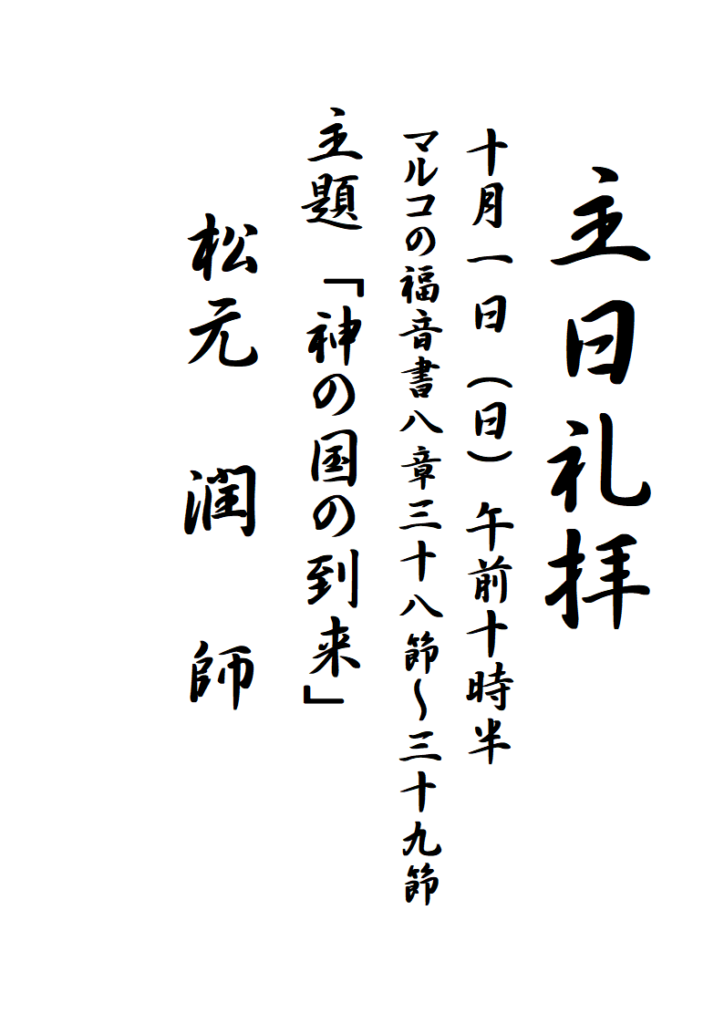 主日礼拝
十月一日（日）午前十時半
マルコの福音書八章三十八節～三十九節
主題「神の国の到来」
松元 潤 師